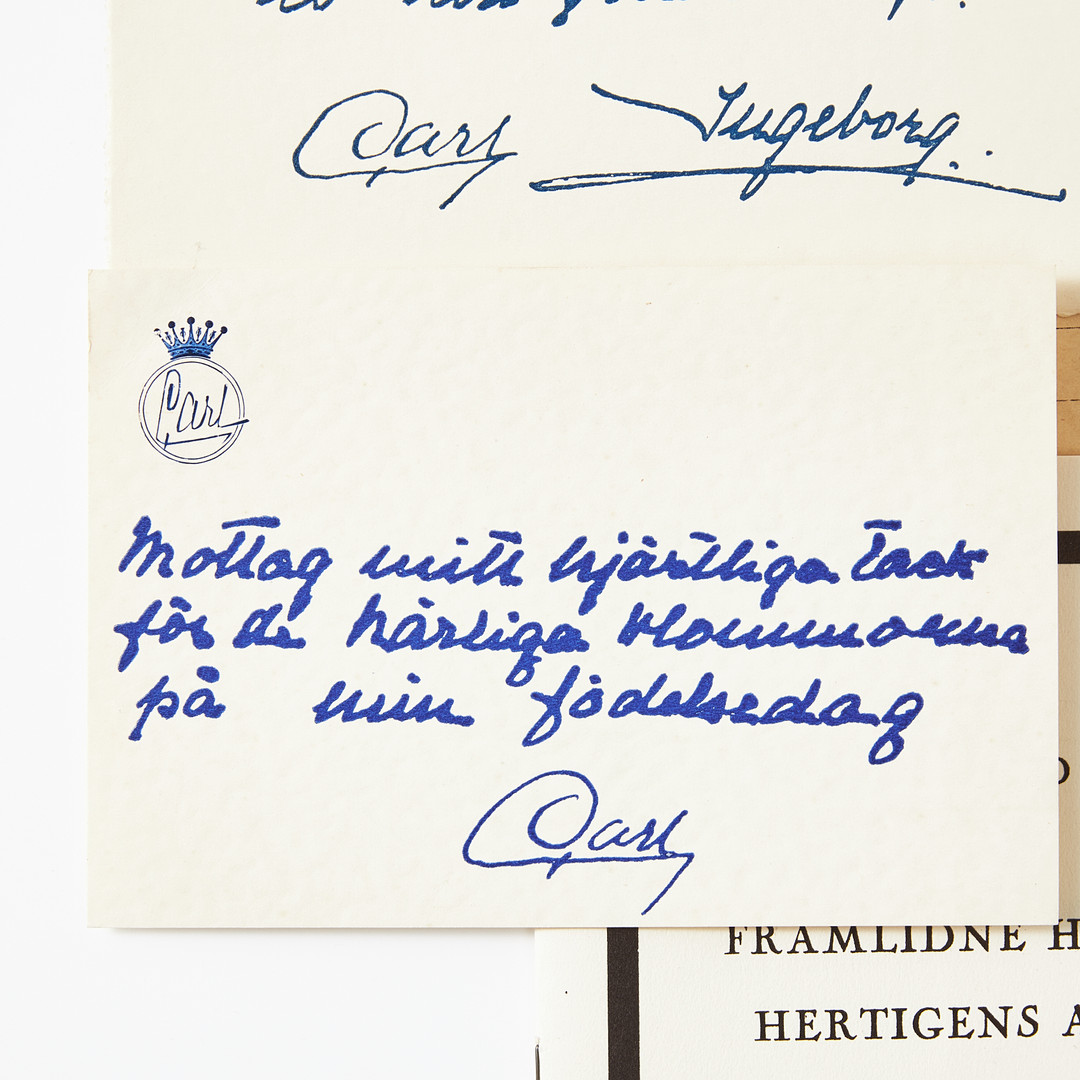 Carl Ingeborg.
Carl
Mottag mitt hjärtliga tack
för de härliga blommorna
på min födelsedag
Carl
FRAMLIDNE H
HERTIGENS A